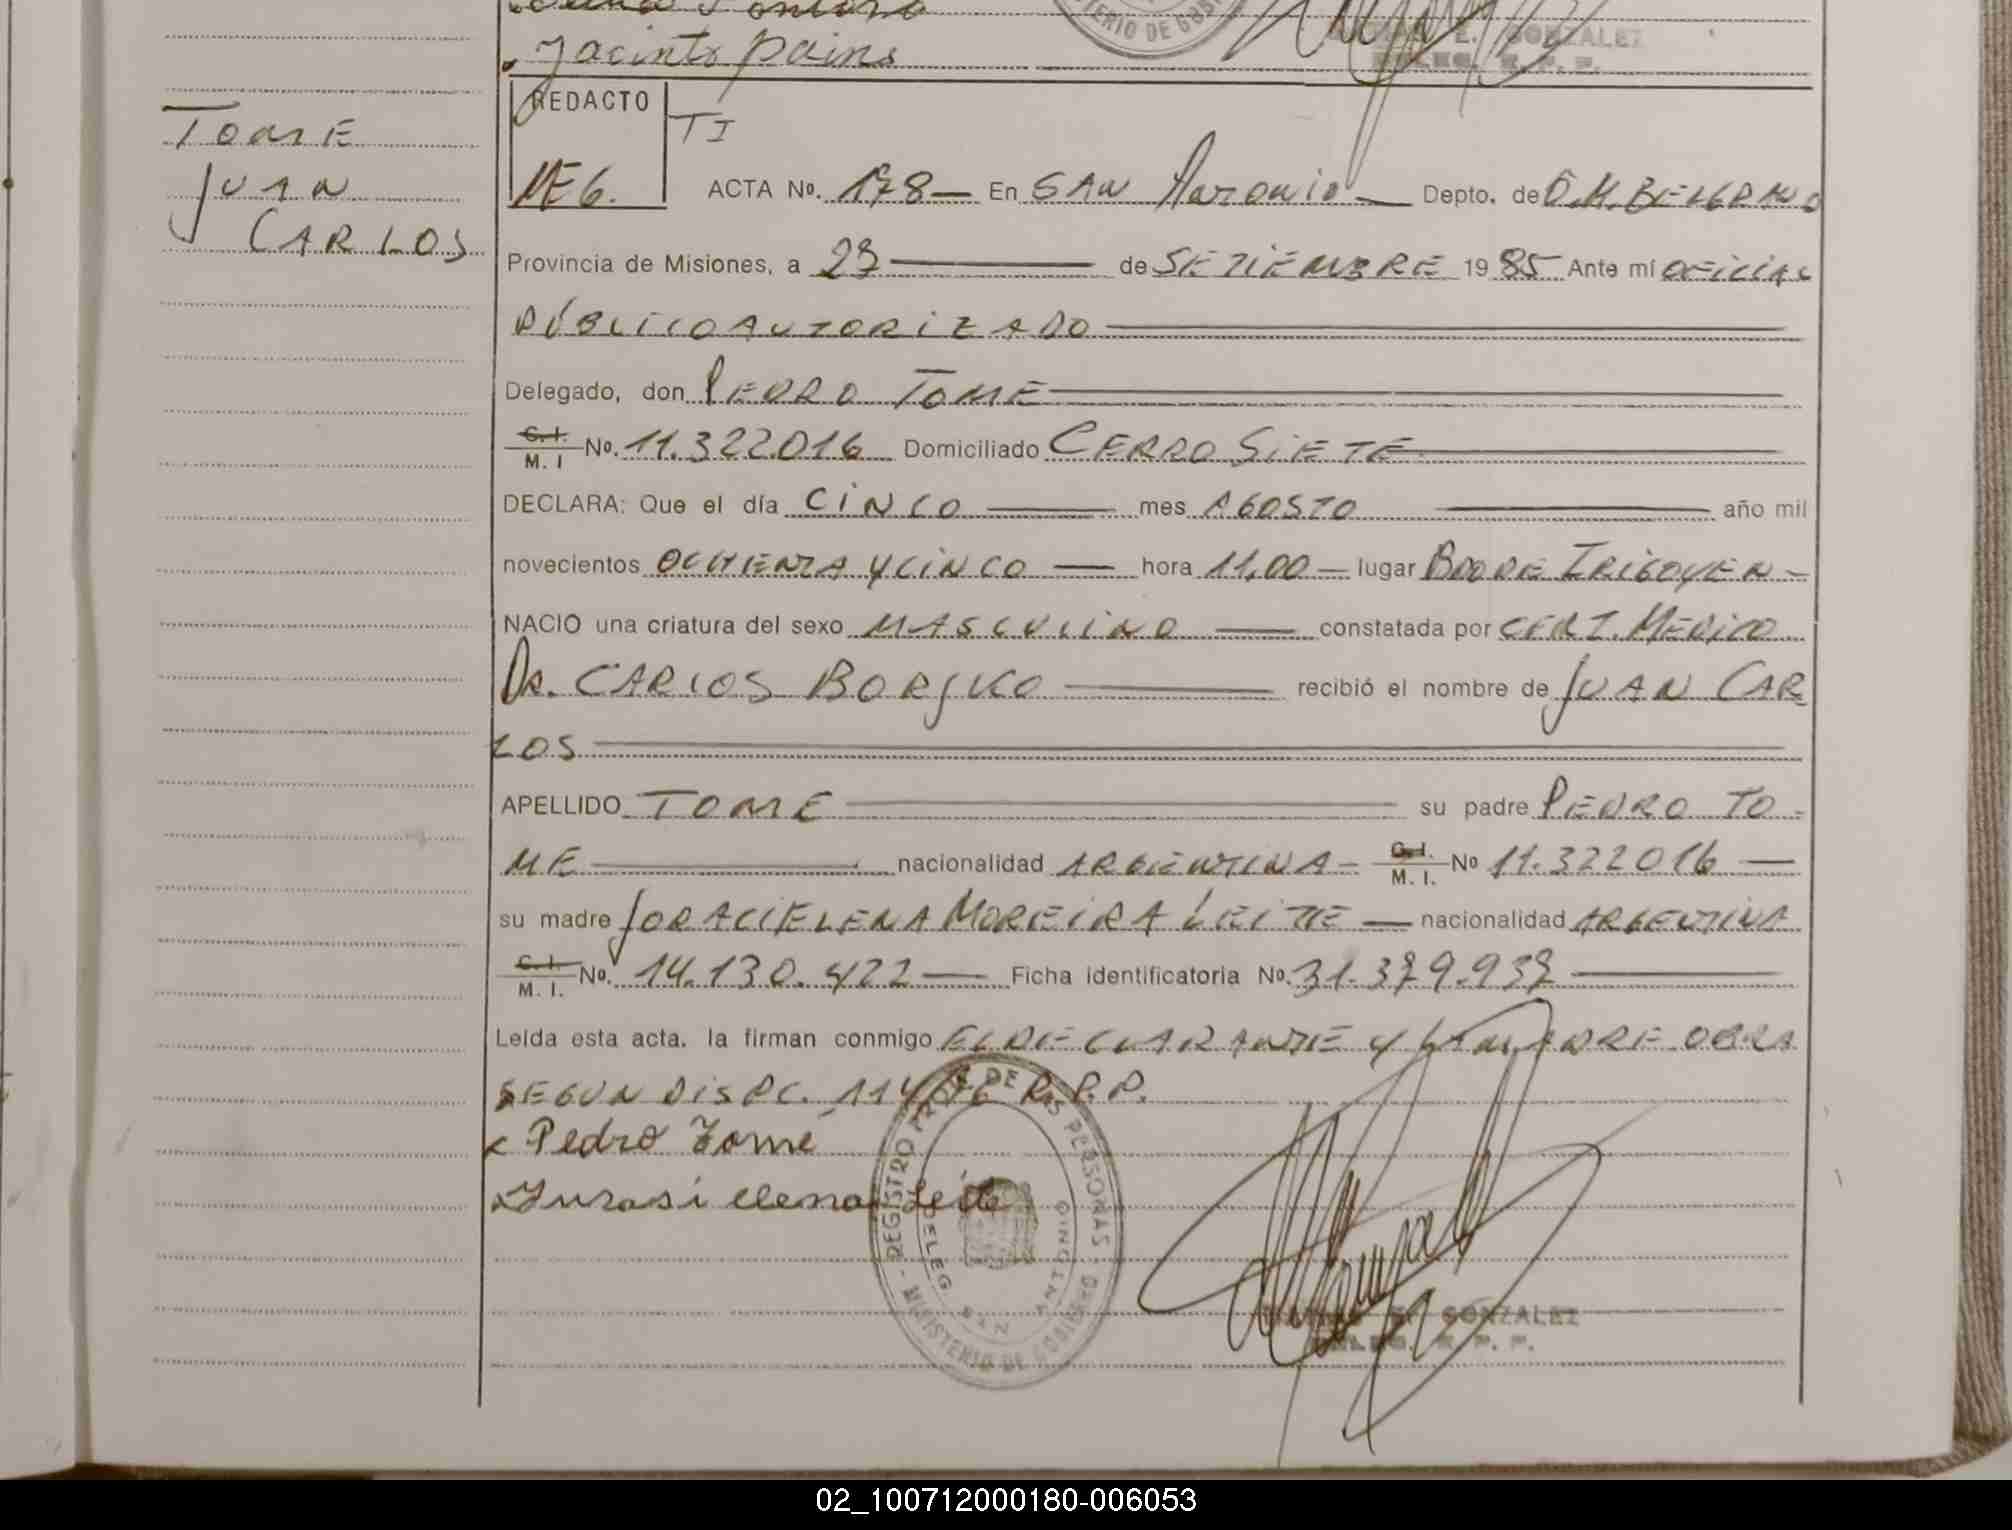 Jacinto pains
E. GONZALEZ
DELEG. R. P. P.
TOME
JUAN
CARLOS
REDACTO
MEG.
TI
ACTA Nº. 178— En SAN Antonio — Depto. de G.M. BELGRANO
Provincia de Misiones, a 23 — de SETIEMBRE 1985 Ante mí OFICIAL
PÚBLICO AUTORIZADO
Delegado, don PEDRO TOME
C. I. M. I Nº. 11.322.016 Domiciliado CERRO SIETE
DECLARA: Que el día CINCO — mes AGOSTO — año mil
novecientos OCHENTA Y CINCO — hora 11,00 — lugar BDO DE IRIGOYEN —
NACIO una criatura del sexo MASCULINO — constatada por CERT. MEDICO
DR. CARLOS BORJUCO — recibió el nombre de JUAN CAR
LOS
APELLIDO TOME — su padre PEDRO TO-
ME — nacionalidad ARGENTINA — C. I. M. I. Nº 11.322016 —
su madre JORACI ELENA MOREIRA LEITE — nacionalidad ARGENTINA
C. I. M. I. Nº. 14.130.422 — Ficha identificatoria Nº. 31.379.937 —
Leída esta acta. la firman conmigo EL DECLARANTE Y LA MADRE OBRA
SEGUN DISPC. 114/76 R.P.P.
x Pedro Tomé
x Jurasi elena Leite
REGISTRO PROV. DE LAS PERSONAS
DELEG. SAN ANTONIO
MINISTERIO DE GOBIERNO
E. GONZALEZ
DELEG. R. P. P.
02_100712000180-006053